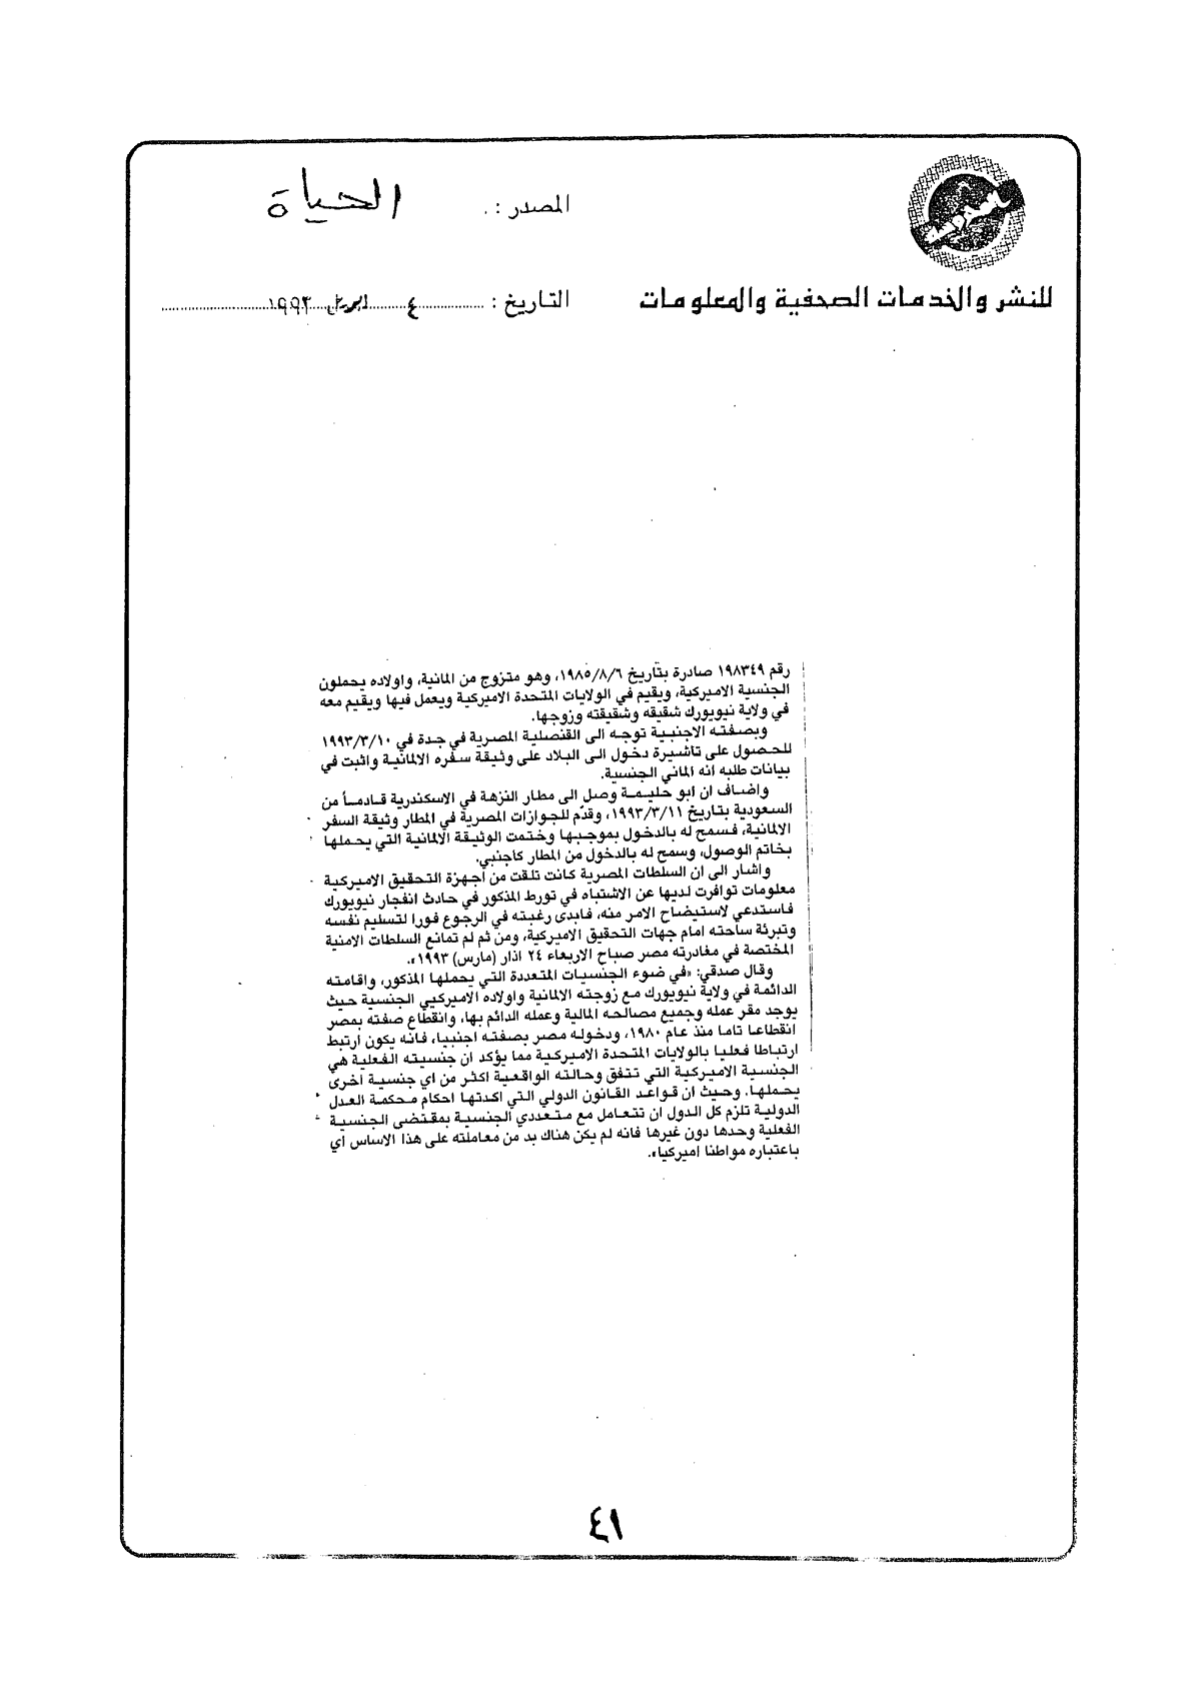 المصدر : الحياة
للنشر والخدمات الصحفية والمعلومات
التاريخ : ٤ ابريل ١٩٩٣
رقم ١٩٨٣٤٩ صادرة بتاريخ ١٩٨٥/٨/٦، وهو متزوج من المانية، واولاده يحملون
الجنسية الاميركية، ويقيم في الولايات المتحدة الاميركية ويعمل فيها ويقيم معه
في ولاية نيويورك شقيقه وشقيقته وزوجها.
وبصفته الاجنبية توجه الى القنصلية المصرية في جدة في ١٩٩٣/٣/١٠
للحصول على تاشيرة دخول الى البلاد على وثيقة سفره الالمانية واثبت في
بيانات طلبه انه الماني الجنسية.
واضاف ان ابو حليمة وصل الى مطار النزهة في الاسكندرية قادماً من
السعودية بتاريخ ١٩٩٣/٣/١١، وقدّم للجوازات المصرية في المطار وثيقة السفر
الالمانية، فسمح له بالدخول بموجبها وختمت الوثيقة الالمانية التي يحملها
بخاتم الوصول، وسمح له بالدخول من المطار كاجنبي.
واشار الى ان السلطات المصرية كانت تلقت من اجهزة التحقيق الاميركية
معلومات توافرت لديها عن الاشتباه في تورط المذكور في حادث انفجار نيويورك
فاستدعي لاستيضاح الامر منه، فابدى رغبته في الرجوع فورا لتسليم نفسه
وتبرئة ساحته امام جهات التحقيق الاميركية، ومن ثم لم تمانع السلطات الامنية
المختصة في مغادرته مصر صباح الاربعاء ٢٤ اذار (مارس) ١٩٩٣».
وقال صدقي: «في ضوء الجنسيات المتعددة التي يحملها المذكور، واقامته
الدائمة في ولاية نيويورك مع زوجته الالمانية واولاده الاميركيي الجنسية حيث
يوجد مقر عمله وجميع مصالحه المالية وعمله الدائم بها، وانقطاع صفته بمصر
انقطاعا تاما منذ عام ١٩٨٠، ودخوله مصر بصفته اجنبيا، فانه يكون ارتبط
ارتباطا فعليا بالولايات المتحدة الاميركية مما يؤكد ان جنسيته الفعلية هي
الجنسية الاميركية التي تتفق وحالته الواقعية اكثر من اي جنسية اخرى
يحملها. وحيث ان قواعد القانون الدولي التي اكدتها احكام محكمة العدل
الدولية تلزم كل الدول ان تتعامل مع متعددي الجنسية بمقتضى الجنسية
الفعلية وحدها دون غيرها فانه لم يكن هناك بد من معاملته على هذا الاساس اي
باعتباره مواطنا اميركيا».
٤١